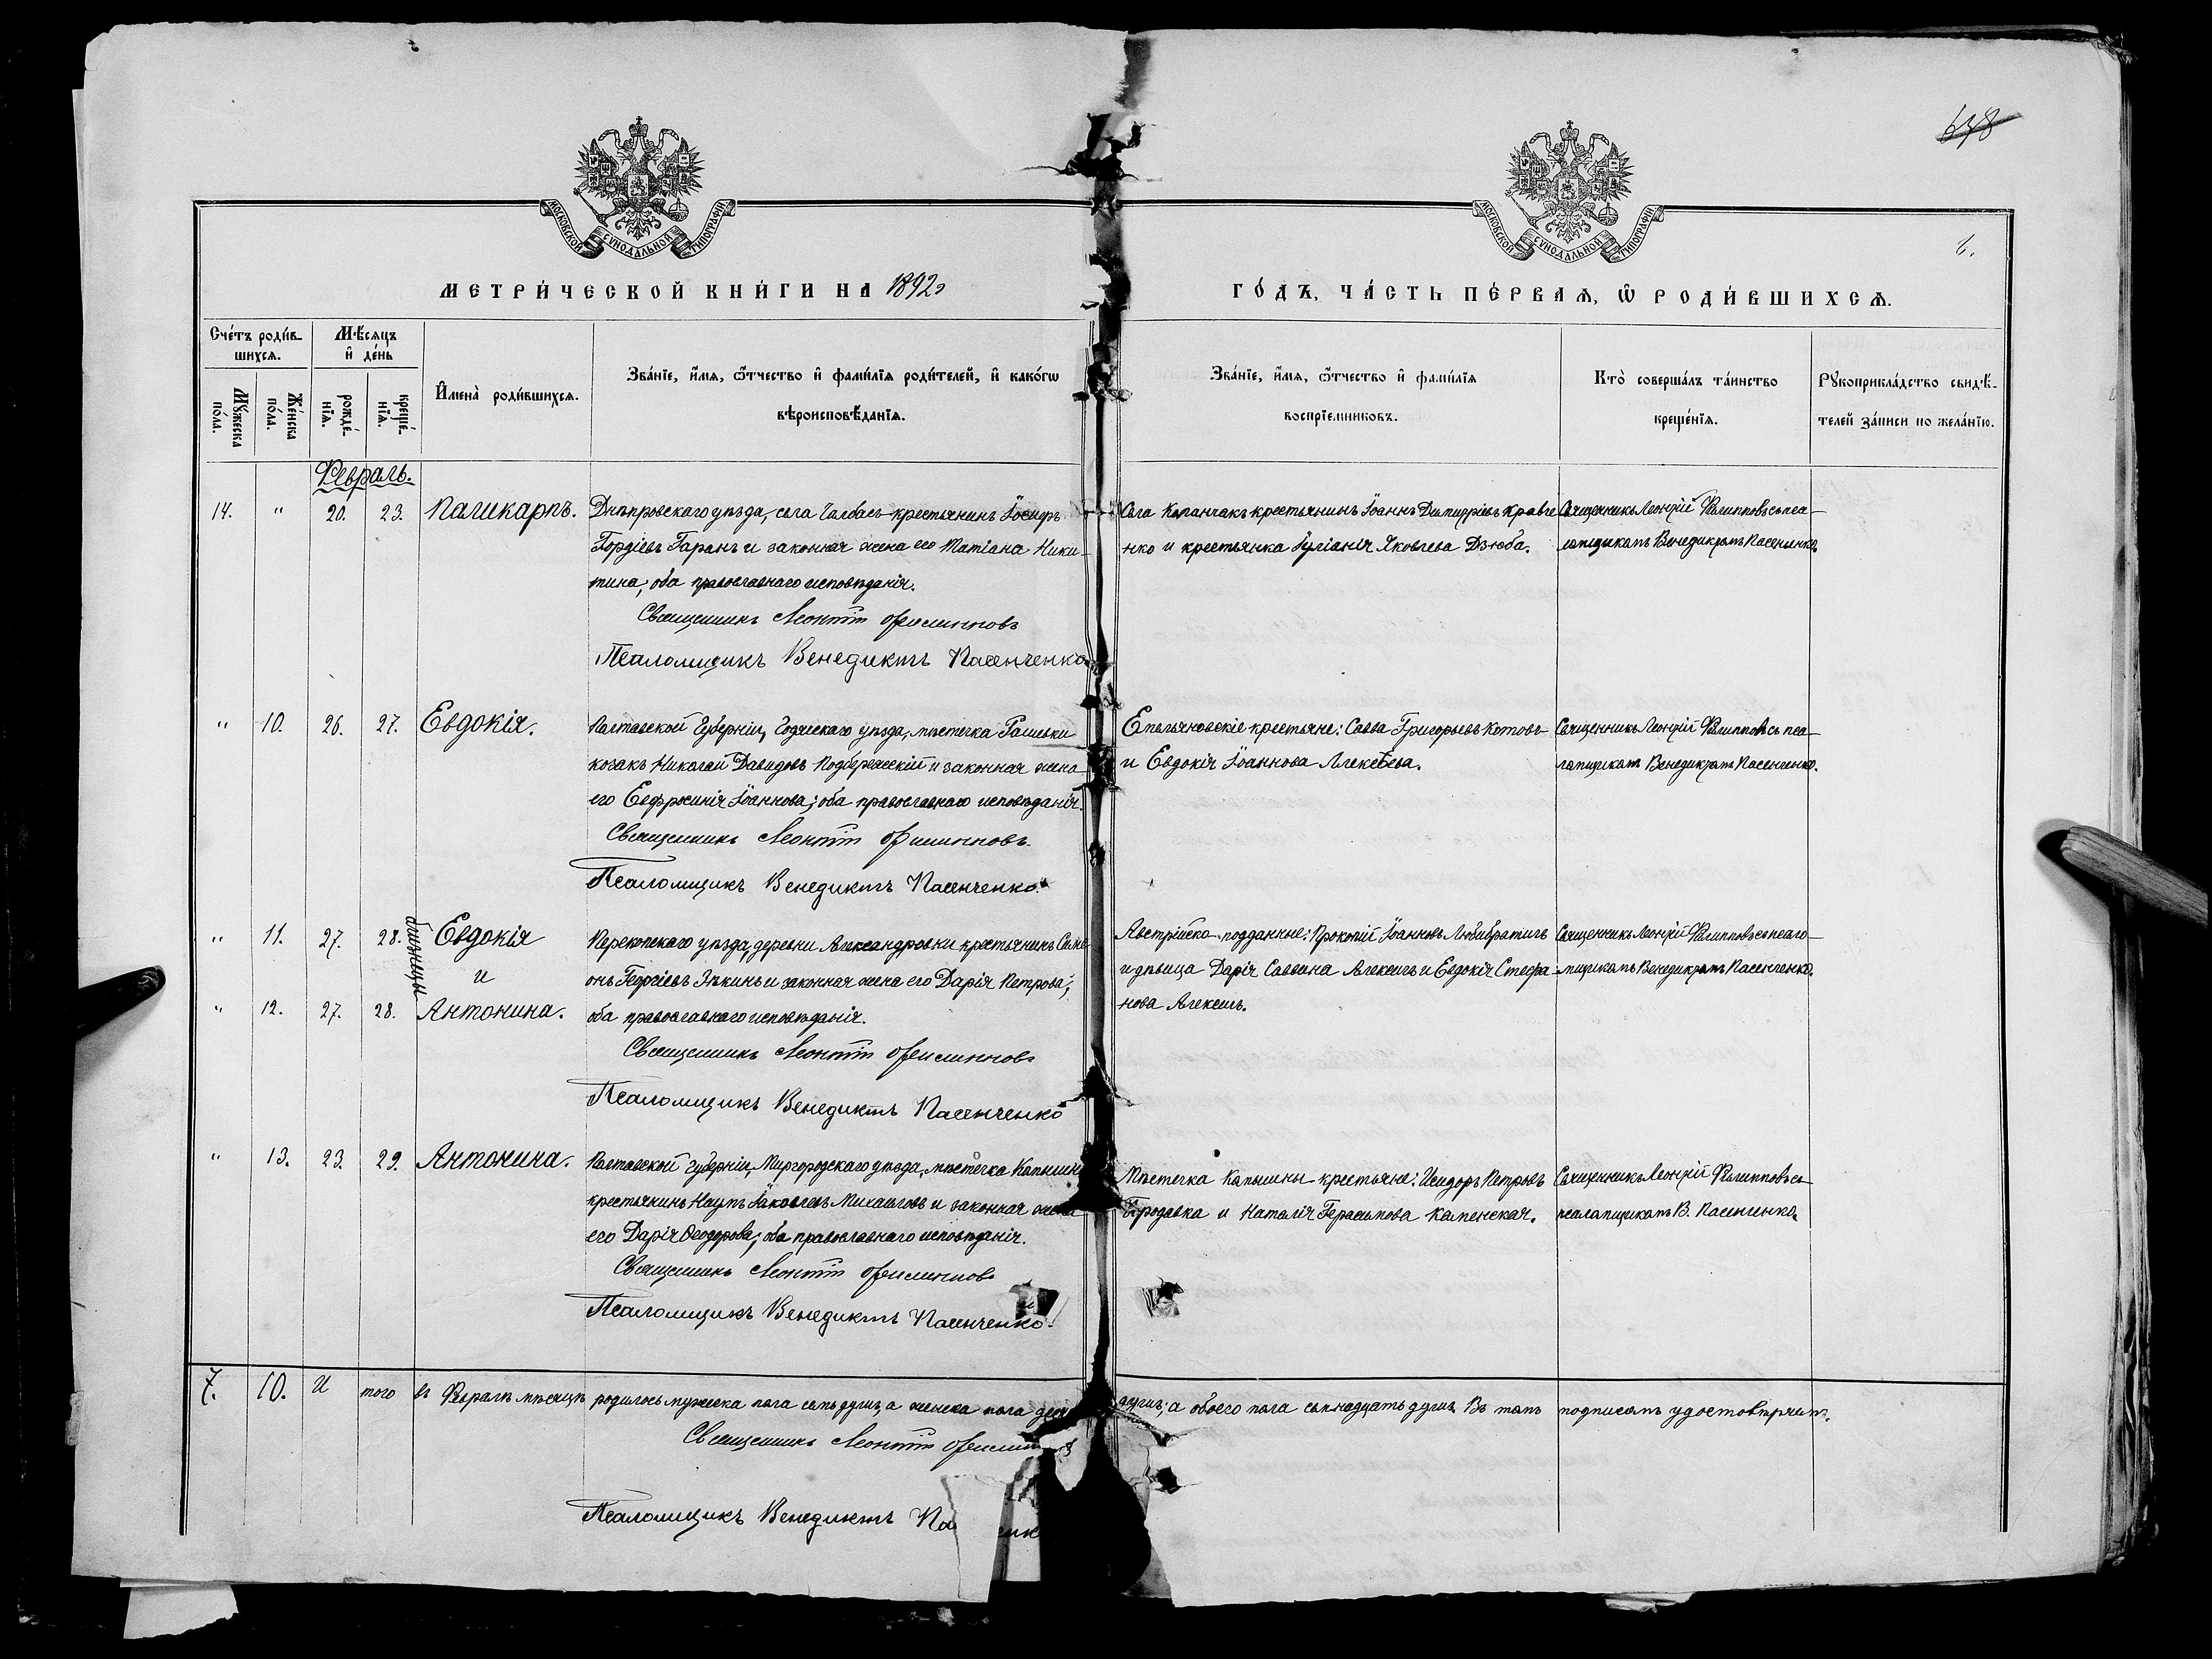 648
6.
МОСКОВСКОЙ СУНОДАЛЬНОЙ ТИПОГРАФІИ
МОСКОВСКОЙ СУНОДАЛЬНОЙ ТИПОГРАФІИ
МЕТРИ́ЧЕСКОЙ КНИ́ГИ НА 1892
ГО́ДЪ, ЧА́СТЬ ПЕ́РВАѦ, Ѡ РОДИ́ВШИХСѦ.
Сче́тъ роди́в-
шихсѧ.
Мꙋ́жеска
по́ла.
Же́нска
по́ла.
Мѣ́сѧцъ
и де́нь
рожде́-
нїѧ.
креще́-
нїѧ.
Имена̀ роди́вшихсѧ.
Зва́нїе, и́мѧ, ѻ́тчество и фами́лїѧ роди́телей, и како́гѡ
вѣроисповѣ́данїѧ.
Зва́нїе, и́мѧ, ѻ́тчество и фами́лїѧ
воспрїемниковъ.
Кто̀ соверша́лъ та́инство
креще́нїѧ.
Рꙋкоприкла́дство свидѣ́-
телей за́писи по жела́нїю.
Февраль.
14. " 20. 23. Паликарпъ.
Днѣпровскаго уѣзда, села Чалбасъ крестьянинъ Іосифъ
Гордіевъ Гаранъ и законная жена его Татіана Ники-
тина; оба православнаго исповѣданія.
Священникъ Леонтій Филипповъ
Псаломщикъ Венедиктъ Пасенченко
Села Каланчакъ крестьянинъ Іоаннъ Димитріевъ Кравче
нко и крестьянка Іуліанія Яковлева Дзюба.
Священникъ Леонтій Филипповъ съ пса-
ломщикомъ Венедиктомъ Пасенченко.
" 10. 26. 27. Евдокія.
Полтавской Губерніи, Годяческаго уѣзда, мѣстечка
козакъ Николай Давидовъ Подбережскій и законная жена
его Евфросинія Іоаннова; оба православнаго исповѣданія.
Священникъ Леонтій Филипповъ.
Псаломщикъ Венедиктъ Пасенченко.
Емельяновскіе крестьяне: Савва Григорьевъ Котовъ
и Евдокія Іоаннова Алексѣева.
Священникъ Леонтій Филипповъ съ пса-
ломщикомъ Венедиктомъ Пасенченко.
" 11. 27. 28. близнецы Евдокія
и
" 12. 27. 28. Антонина.
Перекопскаго уѣзда, деревни Александровки крестьянинъ Симе-
онъ Георгіевъ Зѣкинъ и законная жена его Дарія Петрова;
оба православнаго исповѣданія.
Священникъ Леонтій Филипповъ
Псаломщикъ Венедиктъ Пасенченко
Австрійско-подданные: Прокопій Іоанновъ Любибратичъ
и дѣвица Дарія Саввина Алексичъ и Евдокія Стефа-
нова Алексичъ.
Священникъ Леонтій Филипповъ съ псало-
мщикомъ Венедиктомъ Пасенченко.
" 13. 23. 29. Антонина.
Полтавской Губерніи, Миргородскаго уѣзда, мѣстечка Камышни
крестьянинъ Наумъ Іаковлевъ Михайловъ и законная жена
его Дарія Ѳеодорова; оба православнаго исповѣданія.
Священникъ Леонтій Филипповъ
Псаломщикъ Венедиктъ Пасенченко.
Мѣстечка Камышны крестьяне: Исидоръ Петровъ
Продавка и Наталія Герасимова Каменская.
Священникъ Леонтій Филипповъ съ
псаломщикомъ В. Пасенченко.
7. 10. И того въ Февралѣ мѣсяцѣ родилось мужеска пола семь душъ, а женска пола деся душъ; а обоего пола семнадцать душъ. Въ томъ подписомъ удостовѣряемъ.
Священникъ Леонтій Филипп
Псаломщикъ Венедиктъ Па енк